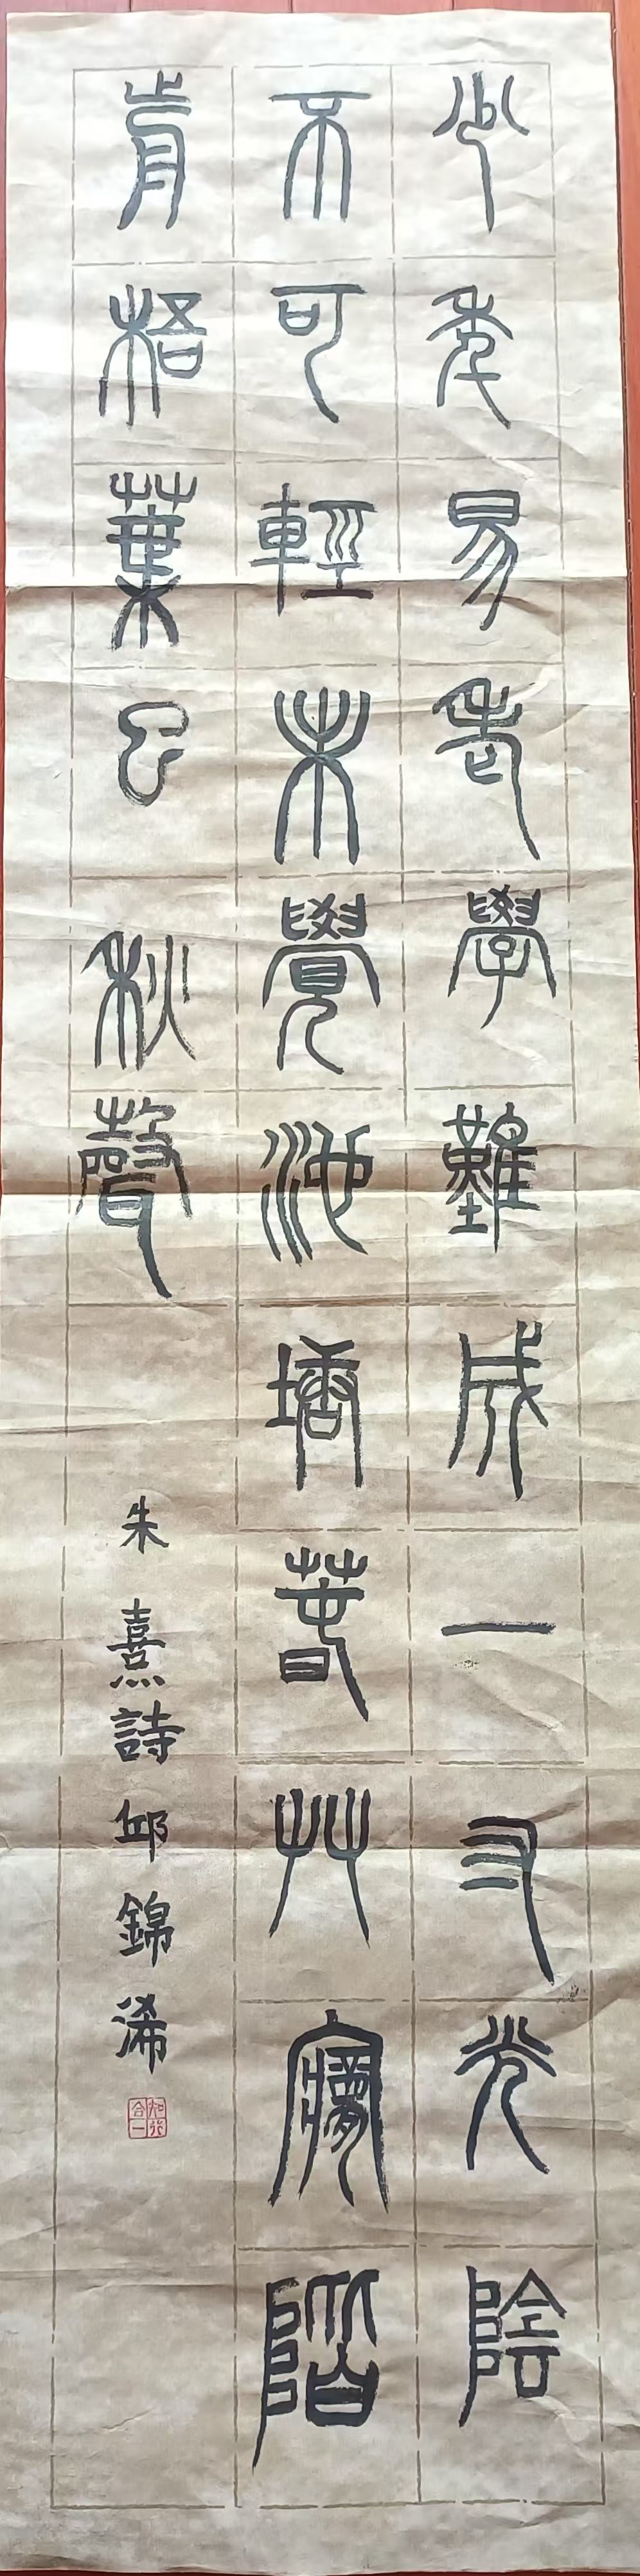 少年易老學難成一寸光陰
不可輕未覺池塘春草夢階
前梧葉已秋聲
朱熹詩邱錦浠
知行合一